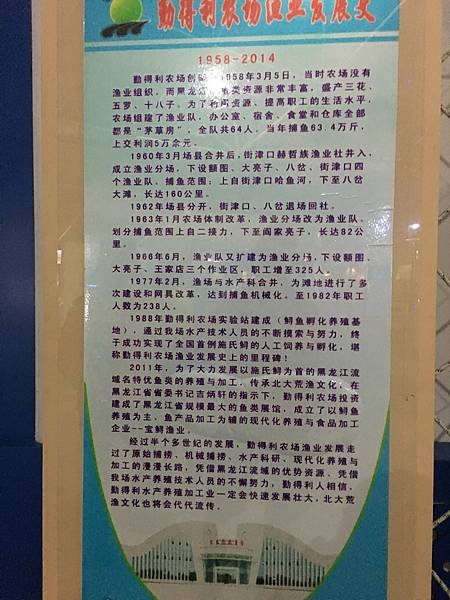 勤得利农场渔业发展史
1958-2014
勤得利农场创建1958年3月5日，当时农场没有
渔业组织，而黑龙江鱼类资源非常丰富，盛产三花、
五罗、十八子。为了利用资源、提高职工的生活水平，
农场组建了渔业队，办公室、宿舍、食堂和仓库全部
都是“茅草房”，全队共64人，当年捕鱼63.4万斤，
上交利润5万余元。
1960年3月场县合并后，街津口赫哲族渔业社并入，
成立渔业分场，下设额图、大亮子、八岔、街津口四
个渔业队。捕鱼范围：上自街津口哈鱼河，下至八岔
大滩，长达160公里。
1962年场县分开，街津口、八岔退场回社。
1963年1月农场体制改革，渔业分场改为渔业队。
划分捕鱼范围上自二接力，下至阎家亮子，长达82公
里。
1966年6月，渔业队又扩建为渔业分场，下设额图、
大亮子、王家店三个作业区，职工增至325人。
1977年2月，渔场与水产科合并，为滩地进行了多
次建设和网具改革，达到捕鱼机械化。至1982年职工
人数为238人。
1988年勤得利农场实验站建成（鲟鱼孵化养殖基
地），通过我场水产技术人员的不断摸索与努力，终
于成功实现了全国首例施氏鲟的人工饲养与孵化，堪
称勤得利农场渔业发展史上的里程碑！
2011年，为了大力发展以施氏鲟为首的黑龙江流
域名特优鱼类的养殖与加工，传承北大荒渔文化，在
黑龙江省省委书记吉炳轩的指示下，勤得利农场投资
建成了黑龙江省规模最大的鱼类展馆，成立了以鲟鱼
养殖为主、鱼产品加工为辅的现代化养殖与食品加工
企业--宝鲟渔业。
经过半个多世纪的发展，勤得利农场渔业发展走
过了原始捕捞、机械捕捞、水产科研、现代化养殖与
加工的漫漫长路，凭借黑龙江流域的优势资源、凭借
我场水产养殖技术人员的不懈努力，勤得利人相信，
勤得利水产养殖加工业一定会快速发展壮大，北大荒
渔文化也将会代代流传。